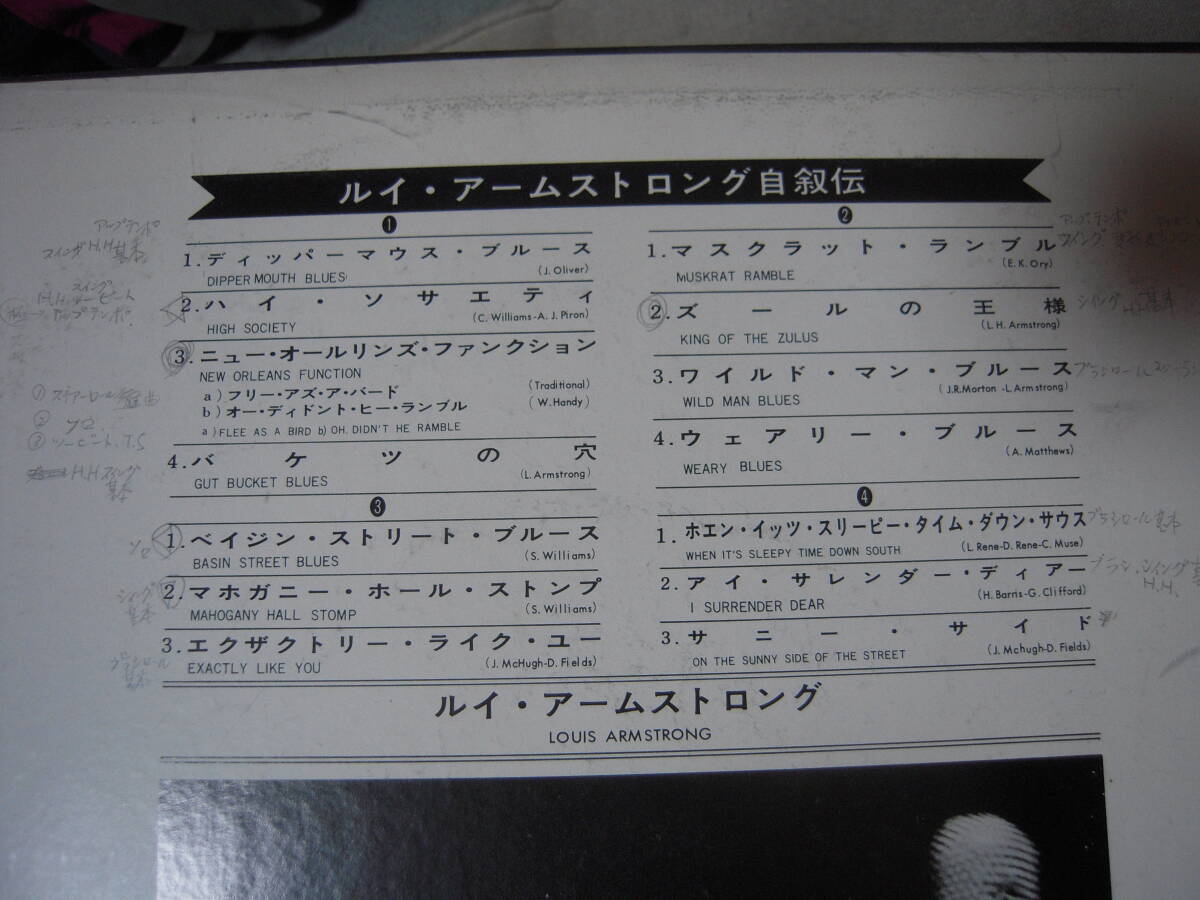 ルイ・アームストロング自叙伝
1
1.ディッパーマウス・ブルース
DIPPER MOUTH BLUES (J. Oliver)
2.ハイ・ソサエティ
HIGH SOCIETY (C. Williams-A. J. Piron)
3.ニュー・オールリンズ・ファンクション
NEW ORLEANS FUNCTION
a)フリー・アズ・ア・バード (Traditional)
b)オー・ディドント・ヒー・ランブル (W. Handy)
a)FLEE AS A BIRD b) OH. DIDN'T HE RAMBLE
4.バケツの穴
GUT BUCKET BLUES (L. Armstrong)
2
1.マスクラット・ランブル
MUSKRAT RAMBLE (E. K. Ory)
2.ズールの王様
KING OF THE ZULUS (L. H. Armstrong)
3.ワイルド・マン・ブルース
WILD MAN BLUES (J.R.Morton -L.Armstrong)
4.ウェアリー・ブルース
WEARY BLUES (A. Matthews)
3
1.ベイジン・ストリート・ブルース
BASIN STREET BLUES (S. Williams)
2.マホガニー・ホール・ストンプ
MAHOGANY HALL STOMP (S. Williams)
3.エクザクトリー・ライク・ユー
EXACTLY LIKE YOU (J. McHugh-D. Fields)
4
1.ホエン・イッツ・スリーピー・タイム・ダウン・サウス
WHEN IT'S SLEEPY TIME DOWN SOUTH (L. Rene-D. Rene-C. Muse)
2.アイ・サレンダー・ディアー
I SURRENDER DEAR (H. Barris-G. Clifford)
3.サニー・サイド
ON THE SUNNY SIDE OF THE STREET (J. Mchugh-D. Fields)
ルイ・アームストロング
LOUIS ARMSTRONG
アップテンポ
スイング H.H. 基本
スイング
アップテンポ
② ソロ
③ ツービート. T.S
H.H. スイング
基本
ソロ
スイング
基本
ブラシロール
基本
アップテンポ
スイング
スイング
H.H. 基本
ブラシロール
ブラシロール 基本
ブラシ. スイング
H.H.